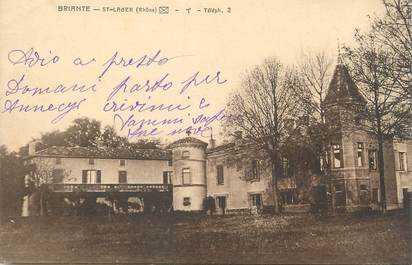 BRIANTE — ST-LAGER (Rhône) — Téléph. 2
Adio a presto
Domani parto per
Annecy scrivimi e